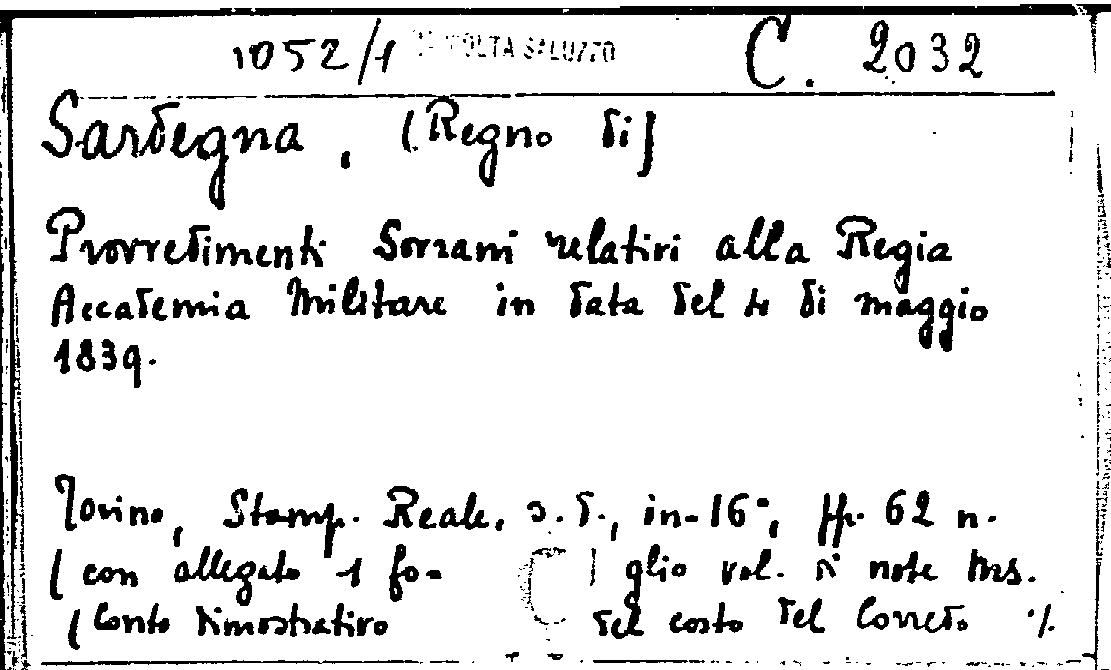 1052/1 VOLTA SALUZZO C. 2032
Sardegna, (Regno di)
Provvedimenti Sovrani relativi alla Regia
Accademia Militare in data del 4 di maggio
1839.
Torino, Stamp. Reale, s. d., in-16°, pp. 62 n.
(con allegato 1 fo- glio vol. di note Ms.
(Conto dimostrativo del costo del Corredo %